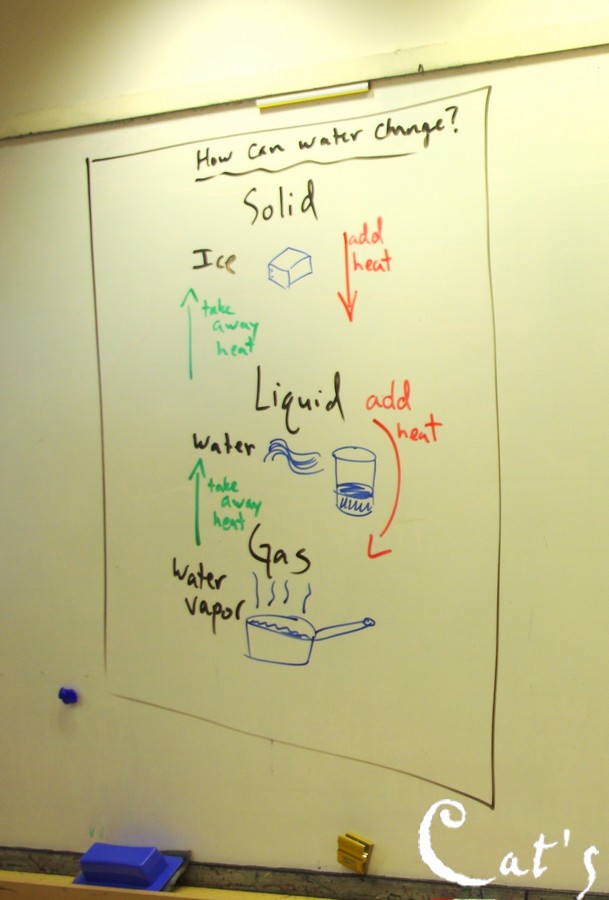 How can water change?
Solid
Ice
add
heat
take
away
heat
Liquid
add
heat
water
take
away
heat
Gas
Water
vapor
Cat's